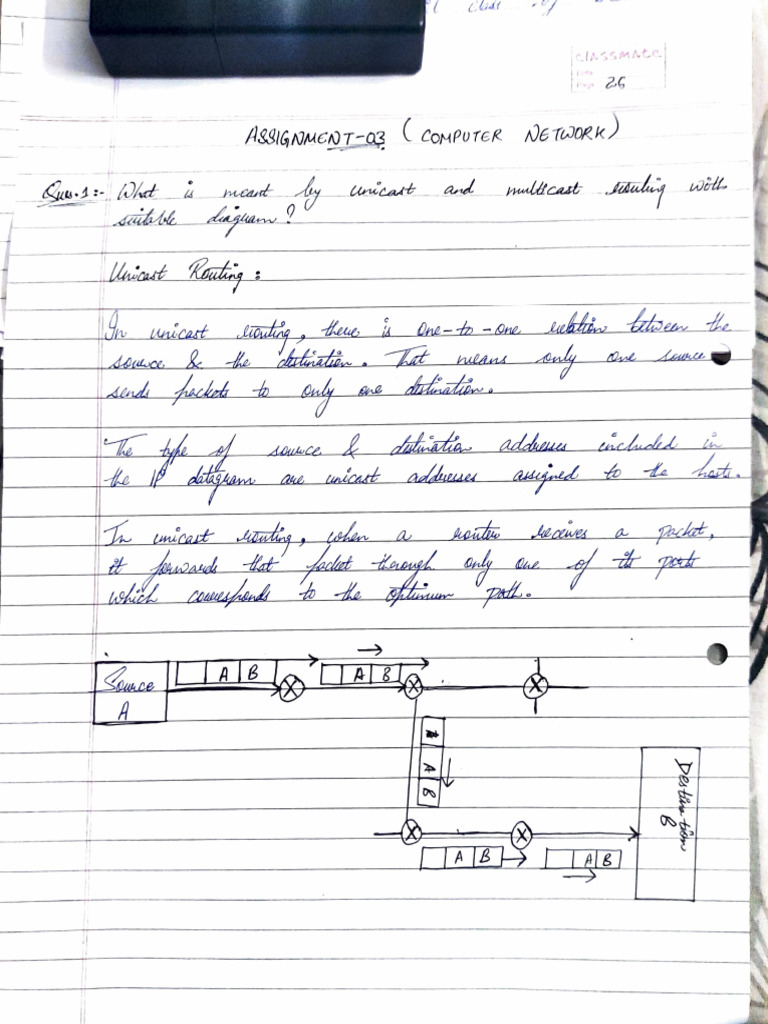 class of
classmate
Date
Page 26
ASSIGNMENT-03 (COMPUTER NETWORK)
Ques.1:- What is meant by unicast and multicast routing with
suitable diagram?
Unicast Routing:
In unicast routing, there is one-to-one relation between the
source & the destination. That means only one source
sends packets to only one destination.
The type of source & destination addresses included in
the IP datagram are unicast addresses assigned to the hosts.
In unicast routing, when a router receives a packet,
it forwards that packet through only one of its ports
which corresponds to the optimum path.
Source
A
A B
A B
A
B
Destination
B
A B
A B